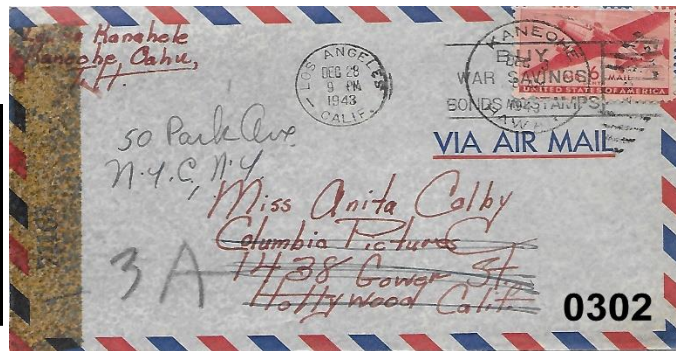 Kanahele
Kaneohe, Oahu,
T.H.
LOS ANGELES
DEC 28
9 PM
1943
CALIF.
KANEOHE
DEC
1943
HAWAII
BUY
WAR SAVINGS
BONDS & STAMPS
6
MAIL
UNITED STATES OF AMERICA
VIA AIR MAIL
50 Park Ave
N.Y.C, N.Y.
Miss Anita Colby
Columbia Pictures
1438 Gower St.
Hollywood Calif.
3A
0302